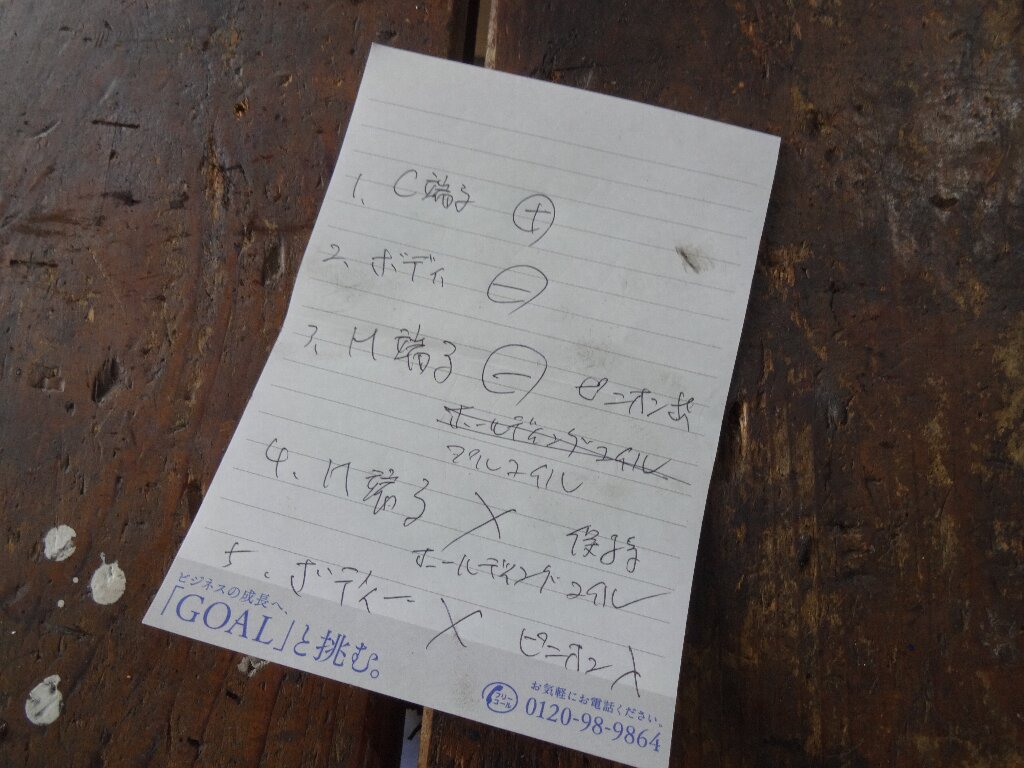 1、C端子 ⊕
2、ボディ ⊖
3、M端子 ⊖ ピニオン出
ホールディングコイル
プルコイル
4、M端子 X 保持
ホールディングコイル
5、ボディー X ピニオン入
ビジネスの成長へ、
「GOAL」と挑む。
フリーコール
お気軽にお電話ください。
0120-98-9864